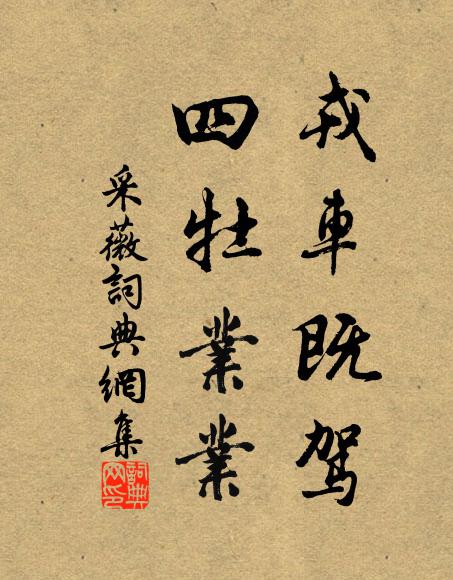 戎車既駕
四牡業業
采薇詞典網集
詞典網印